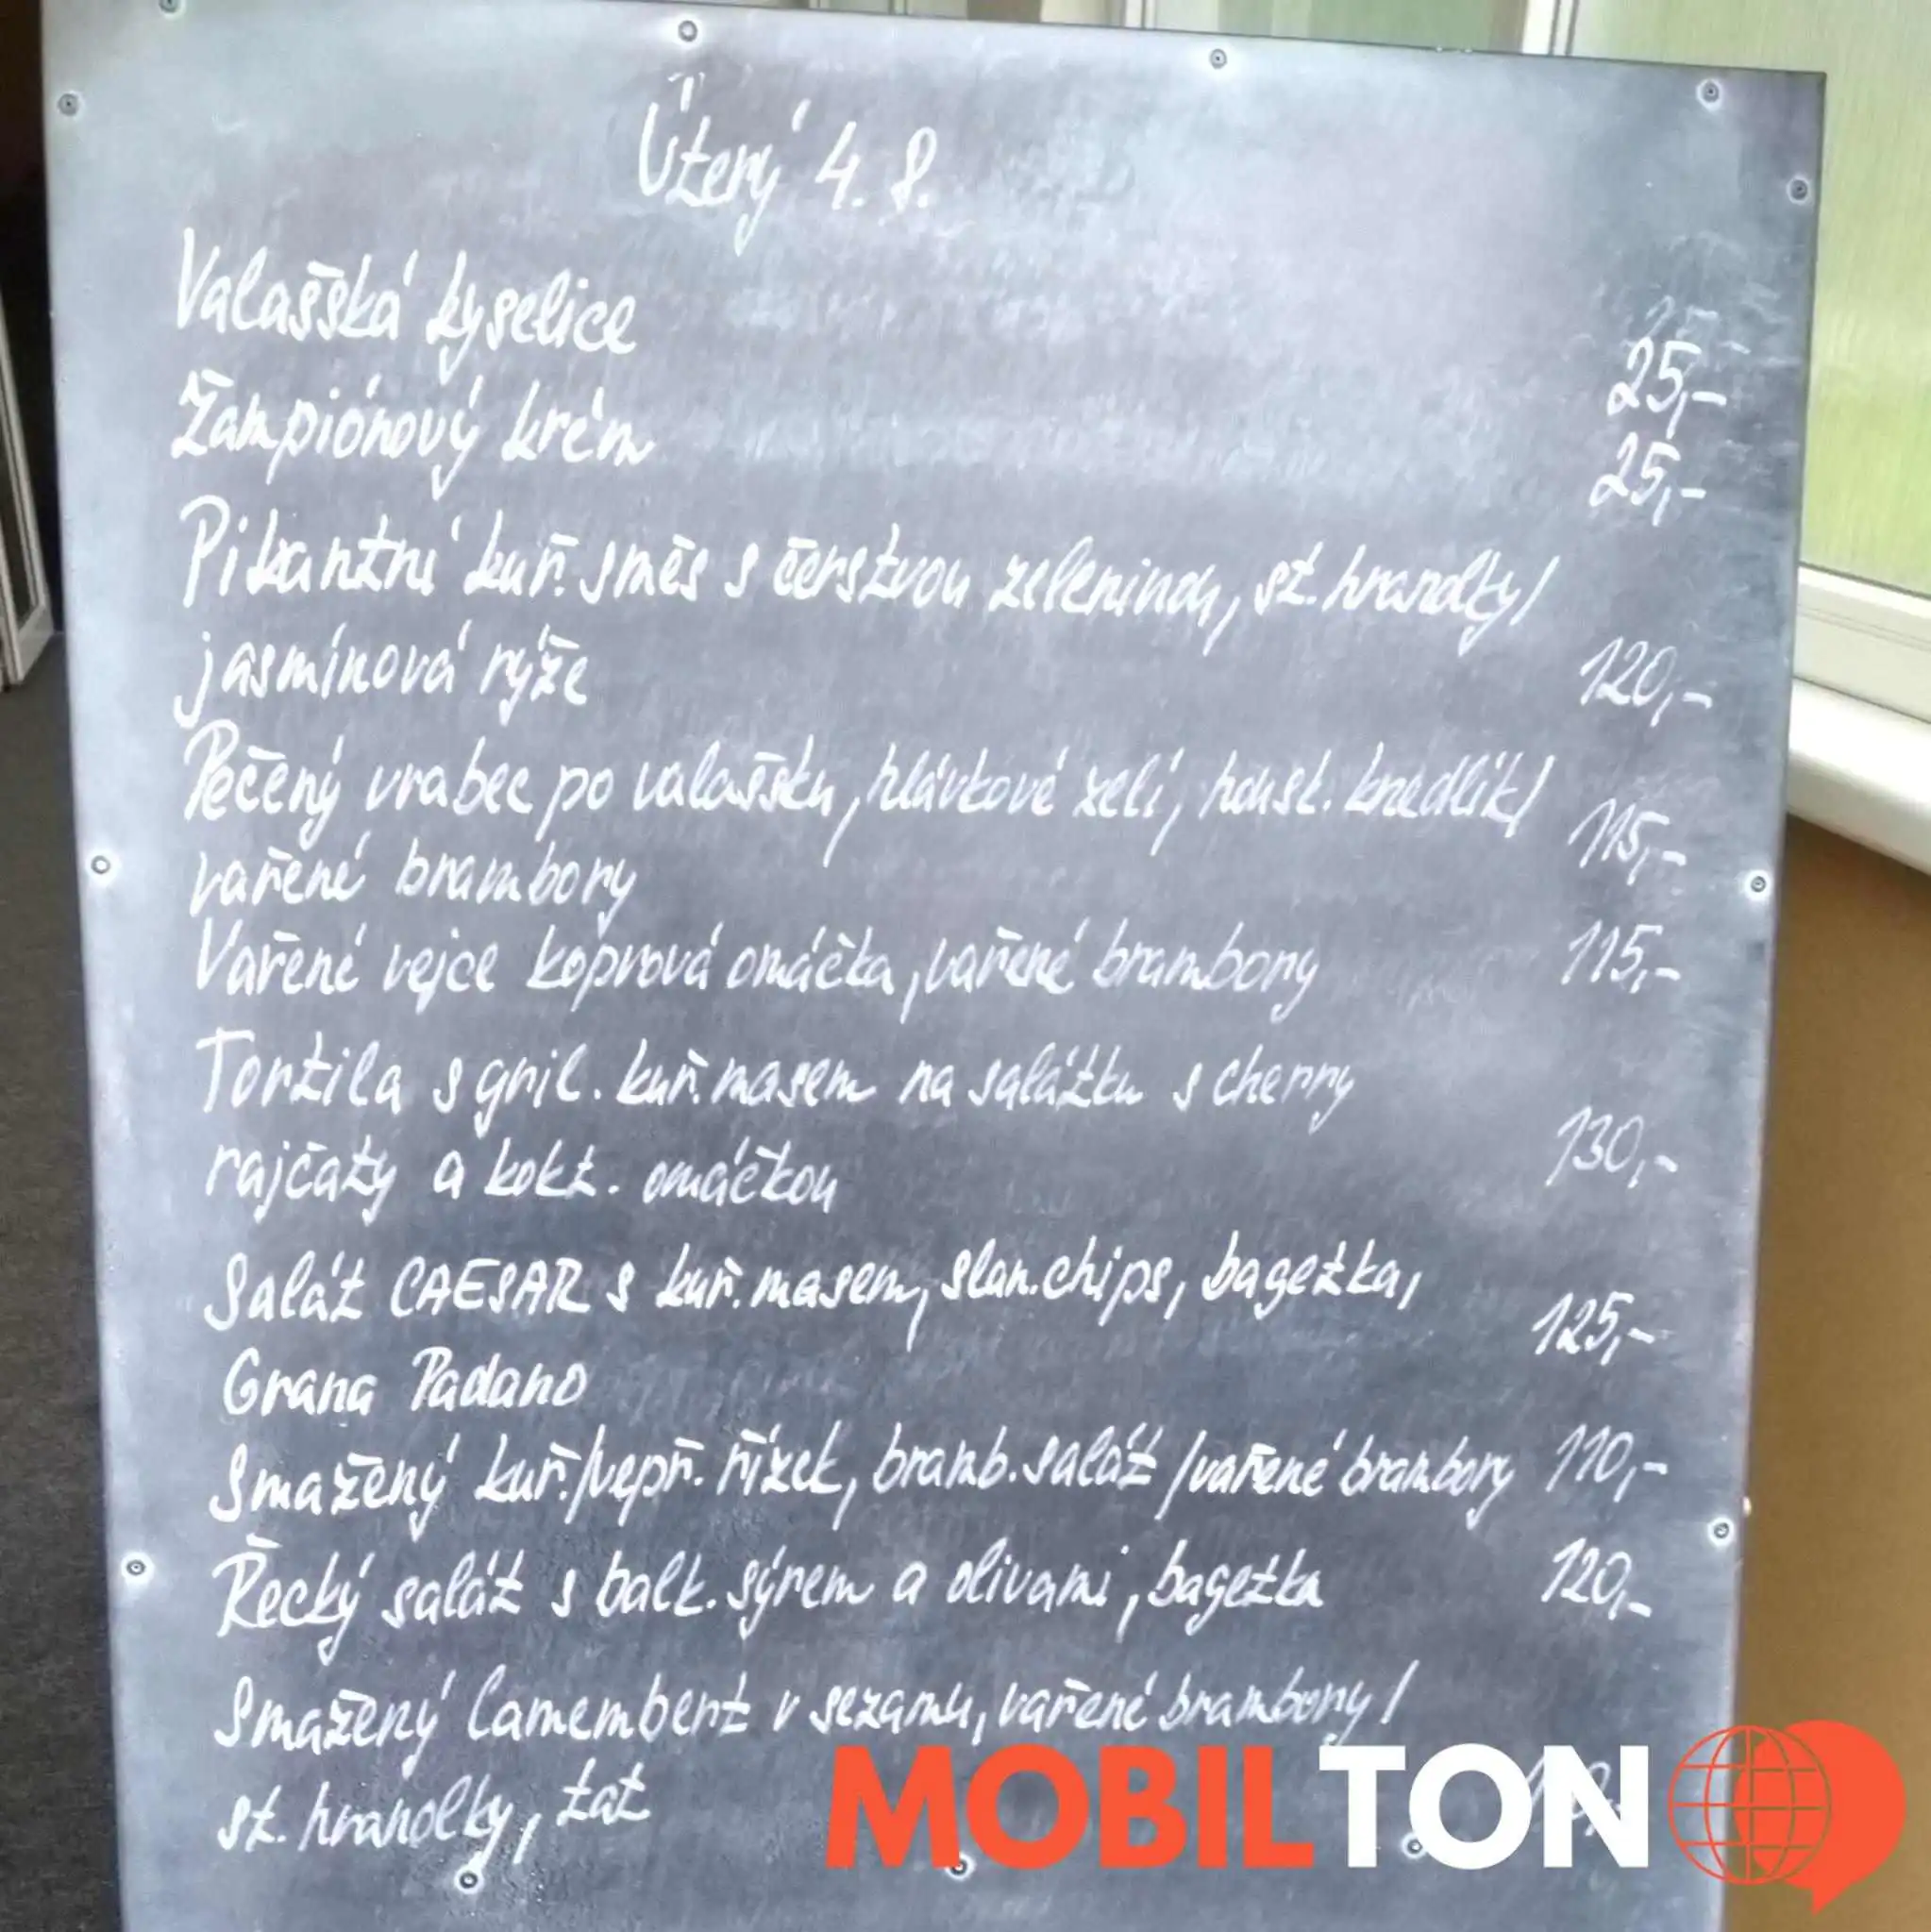 Úterý 4. 8.
Valašská kyselice 25,-
Žampiónový krém 25,-
Pikantní kuř. směs s čerstvou zeleninou, st. hranolky/
jasmínová rýže 120,-
Pečený vrabec po valašsku, hlávkové zelí, houst. knedlík/ 115,-
vařené brambory
Vařené vejce koprová omáčka, vařené brambory 115,-
Tortila s gril. kuř. masem na salátku s cherry
rajčaty a kokt. omáčkou 130,-
Salát CAESAR s kuř. masem, slan. chips, bagetka, 125,-
Grana Padano
Smažený kuř./vepř. řízek, bramb. salát /vařené brambory 110,-
Řecký salát s balk. sýrem a olivami, bagetka 120,-
Smažený Camembert v sezamu, vařené brambory/
st. hranolky, tat
MOBIL TON